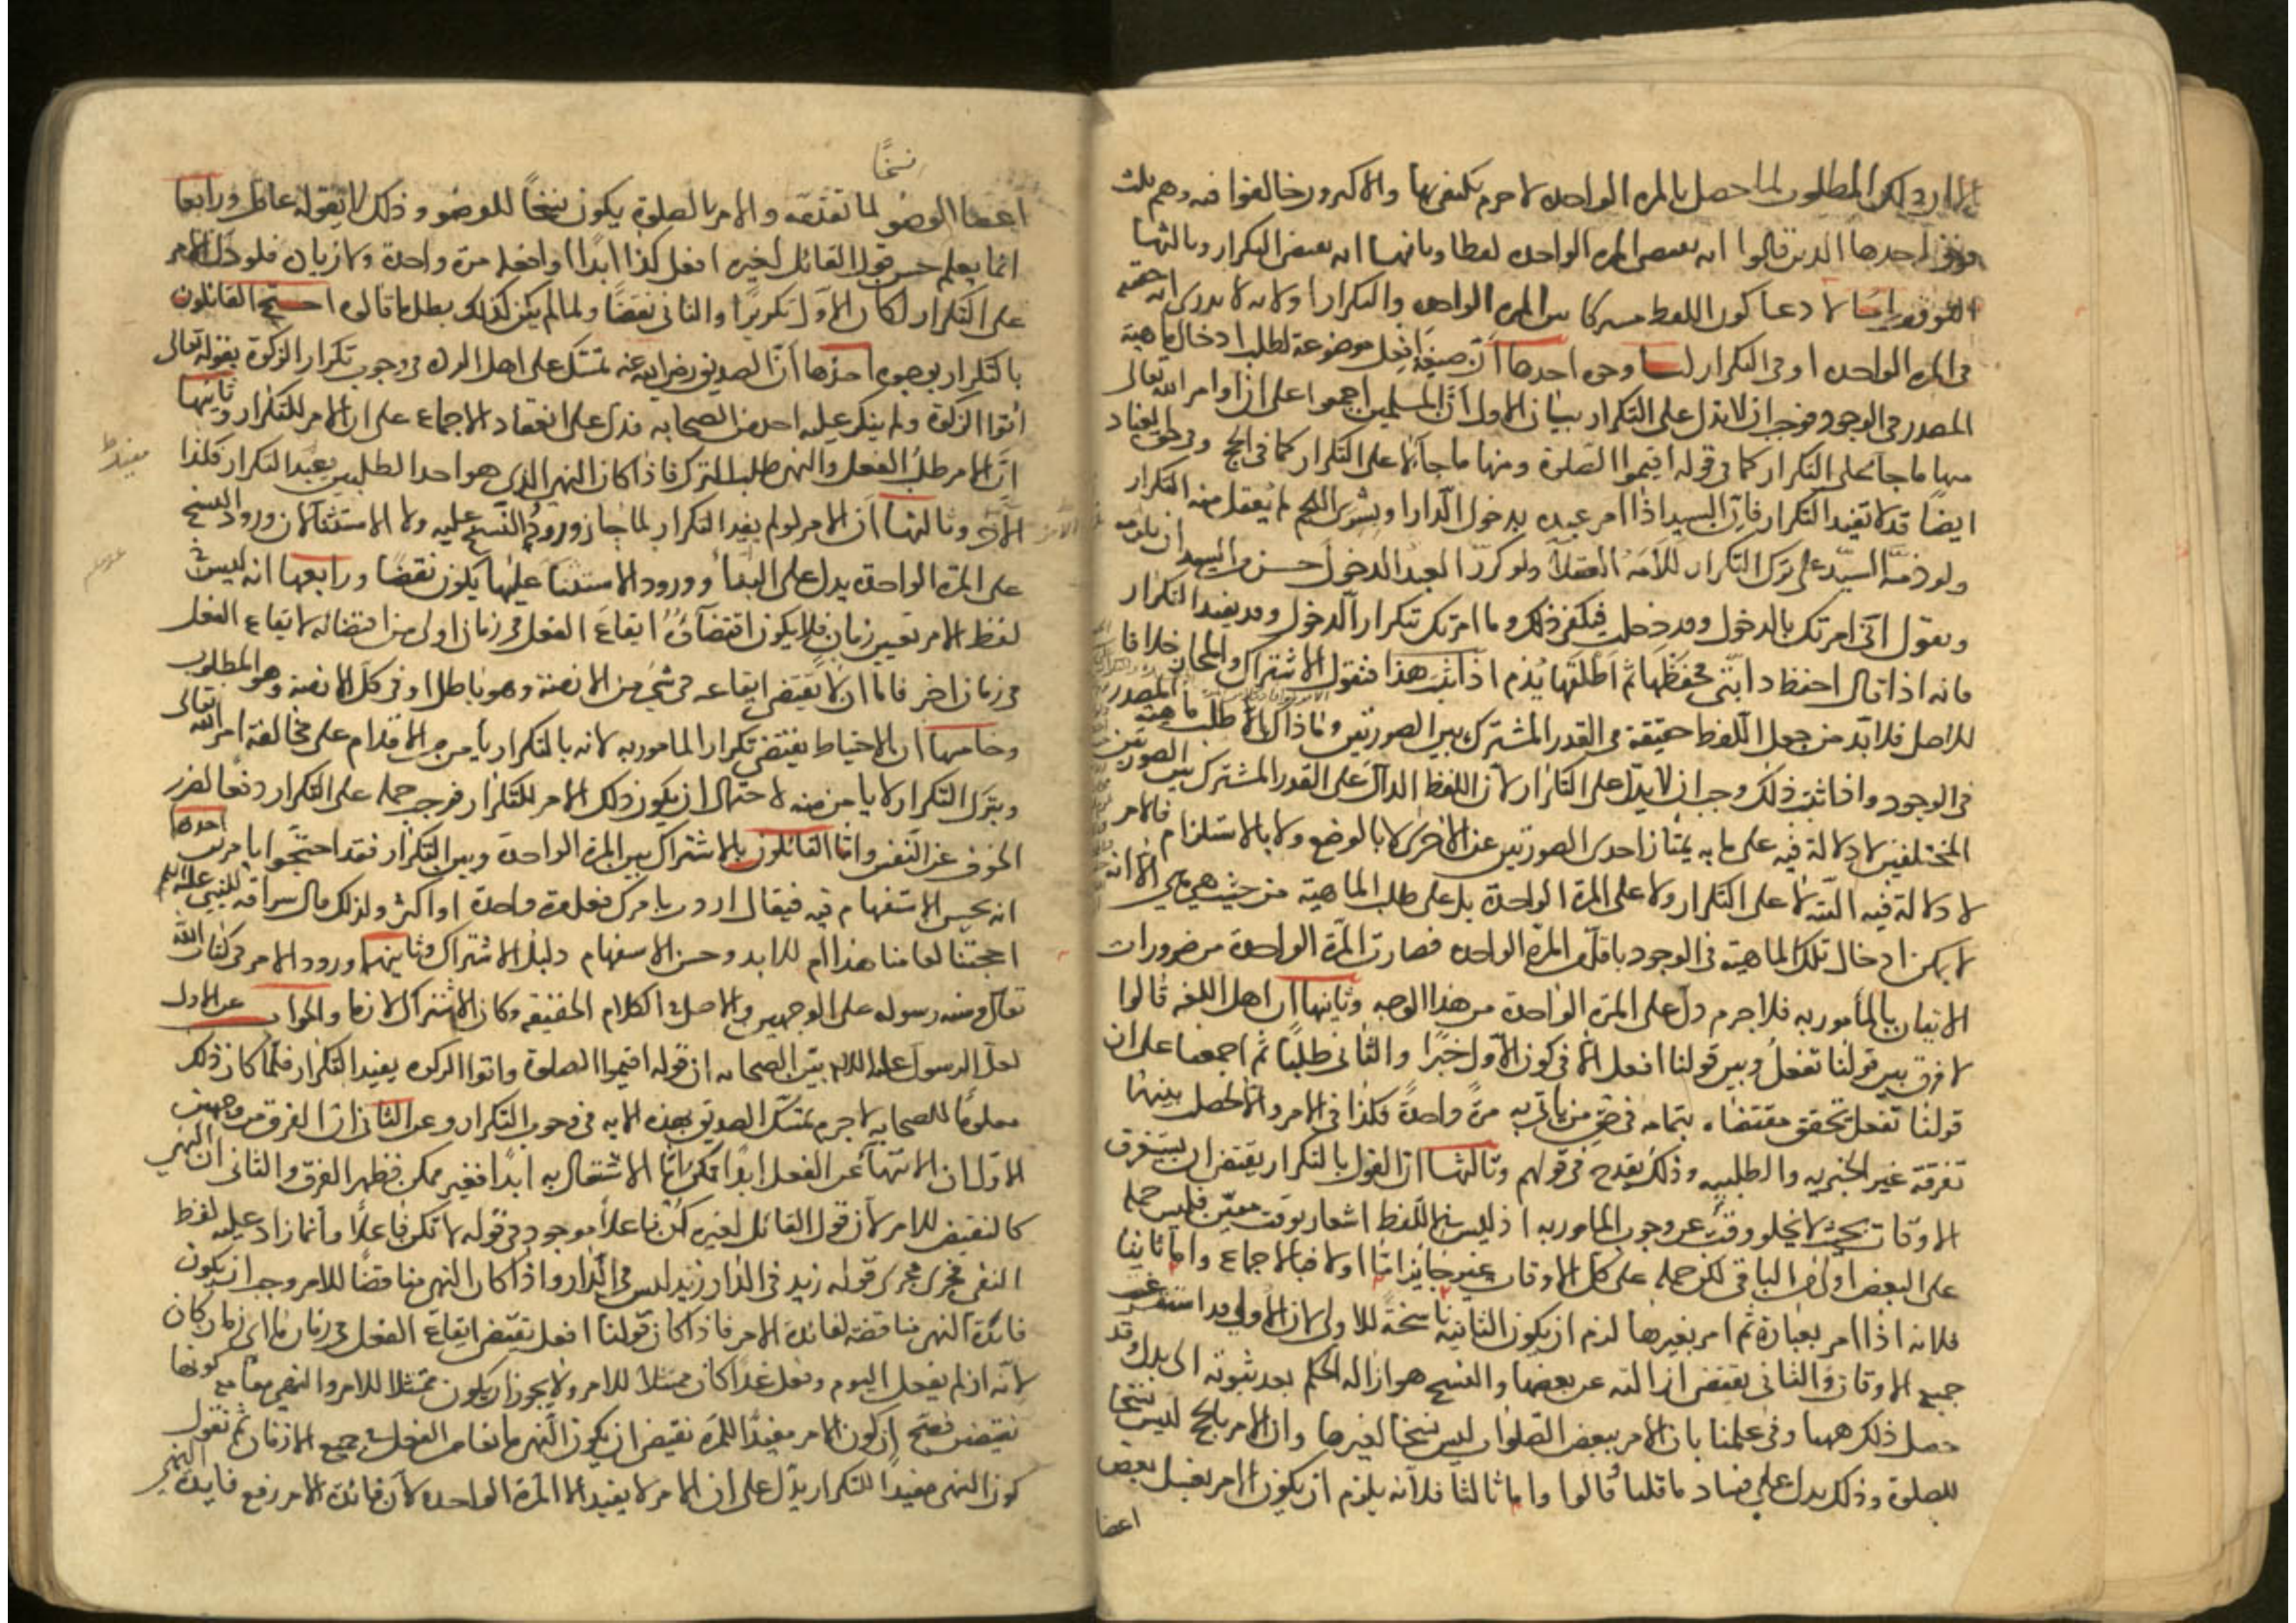 إيراده لكن المطلوب لما حصل بالمرة الواحدة لا جرم يكتفى بها والاكثرون خالفوا فيه وهم ثلث
فرق احدها الذين قالوا انه يقتضى المرة الواحدة لفظا وثانيها انه يقتضى التكرار وثالثها
التوقف اما لادعا كون اللفظ مشتركا بين المرة الواحدة والتكرار او لانه لا يدرى انه حقيقة
فى المرة الواحدة او فى التكرار لنا وجوه احدها ان صيغة افعل موضوعة لطلب ادخال ماهية
المصدر فى الوجود فوجب ان لا تدل على التكرار بيان الاول ان المسلمين اجمعوا على ان اوامر الله تعالى
منها ما جاء على التكرار كما فى قوله اقيموا الصلوة ومنها ما جاء لا على التكرار كما فى الحج وفى حق العباد
ايضًا قد لا تفيد التكرار فان السيد اذا امر عبده بدخول الدار او بشرى اللحم لم يعقل منه التكرار
ولو ذمه السيد على ترك التكرار للامه العقلاء ولو كرر العبد الدخول حسن من السيد ان يلومه
ويقول انى امرتك بالدخول وقد دخلت فيكفى ذلك وما امرتك بتكرار الدخول وقد يفيد التكرار
فانه اذا قال احفظ دابتى فحفظها ثم اطلقها يذم اذا ثبت هذا فنقول الاشتراك والمجاز خلافا
للاصل فلا بد من جعل اللفظ حقيقة فى القدر المشترك بين الصورتين وما ذاك الا طلب ماهية المصدر
فى الوجود واذا ثبت ذلك وجب ان لا يدل على التكرار لان اللفظ الدال على القدر المشترك بين الصورتين
المختلفتين لا دلالة فيه على ما به يمتاز احدى الصورتين عن الاخرى لا بالوضع ولا بالاستلزام فالامر
لا دلالة فيه البتة لا على التكرار ولا على المرة الواحدة بل على طلب الماهية من حيث هى هى الا انه
لا يمكن ادخال تلك الماهية فى الوجود باقل من المرة الواحدة فصارت المرة الواحدة من ضرورات
الاتيان بالمأمور به فلا جرم دل على المرة الواحدة من هذا الوجه وثانيها ان اهل اللغة قالوا
لا فرق بين قولنا تفعل وبين قولنا افعل الا فى كون الاول خبرًا والثانى طلبًا ثم اجمعنا على ان
قولنا تفعل تحقق مقتضاه بتمامه فى حق من يأتى به مرة واحدة فكذا فى الامر والا لحصل بينهما
تفرقة غير الخبرية والطلبية وذلك يقدح فى قولهم وثالثها ان القول بالتكرار يقتضى ان يستغرق
الاوقات بحيث لا يخلو وقت عن وجوب المامور به اذ ليس فى اللفظ اشعار بوقت معين فليس حمله
على البعض اولى من الباقى لكن حمله على كل الاوقات غير جائز اما اولا فبالاجماع واما ثانيا
فلانه اذا امر بعبادة ثم امر بغيرها لزم ان يكون الثانية ناسخة للاولى لان الاولى قد استغرقت
جميع الاوقات والثانى يقتضى ازالته عن بعضها والنسخ هو ازالة الحكم بعد ثبوته الى بدل قد
حصل ذلك ههنا وفى علمنا بان الامر ببعض الصلوات ليس نسخا لغيرها وان الامر بالحج ليس نسخا
للصلوة وذلك يدل على فساد ما قلنا قالوا واما ثالثا فلانه يلزم ان يكون الامر بغسل بعض
اعضا
نسخًا
اعضا الوضو لما تقدمه والامر بالصلوة يكون نسخًا للوضو وذلك لا يقوله عاقل ورابعا
انما يعلم حسن قول القائل لغيره افعل كذا ابدًا او افعله مرة واحدة ولا زيادة فلو دل الامر
على التكرار لكان الاول تكريرًا والثانى نقضًا ولما لم يكن كذلك بطل ما قالوه احتج القائلون
بالتكرار بوجوه احدها ان الصديق رضى الله عنه تمسك على اهل الردة فى وجوب تكرار الزكوة بقوله تعالى
اتوا الزكوة ولم ينكر عليه احد من الصحابه فدل على انعقاد الاجماع على ان الامر للتكرار وثانيها
ان الامر طلب الفعل والنهى طلب الترك فاذا كان النهى الذى هو احد الطلبين يفيد التكرار فكذا
الآخر وثالثها ان الامر لو لم يفد التكرار لما جاز ورود النسخ عليه ولا الاستثنا لان ورود النسخ
على المرة الواحدة يدل على البدأ وورود الاستثنا عليها يكون نقضًا ورابعها انه ليس فى
لفظ الامر تعيين زمان فلا يكون اقتضاؤه ايقاع الفعل فى زمان اولى من اقتضائه لايقاع الفعل
فى زمان اخر فاما ان لا يقتضى ايقاعه فى شئ من الازمنة وهو باطل او فى كل الازمنة وهو المطلوب
وخامسها ان الاحتياط يقتضى تكرار المامور به لانه بالتكرار يأمن من الاقدام على مخالفة امر الله تعالى
وبترك التكرار لا يامن منه لاحتمال ان يكون ذلك الامر للتكرار فوجب حمله على التكرار دفعا لضرر
الخوف عن النفس واما القائلون بالاشتراك بين المرة الواحدة وبين التكرار فقد احتجوا بامرين احدهما
انه يحسن الاستفهام فيه فيقال اردت بامرك فعل مرة واحدة او اكثر ولذلك قال سراقه للنبى عليه السلم
احجتنا لعامنا هذا ام للابد وحسن الاستفهام دليل الاشتراك وثانيهما ورود الامر فى كتاب الله
تعالى وسنة رسوله على الوجهين والاصل فى الكلام الحقيقة وكان الاشتراك لازما والجواب عن الاول
لعل الرسول عليه السلام بين للصحابه ان قوله اقيموا الصلوة واتوا الزكوه يفيد التكرار فلما كان ذلك
معلومًا للصحابه لا جرم تمسك الصديق بهذه الايه فى وجوب التكرار وعن الثانى ان الفرق من وجهين
الاول ان الانتهاء عن الفعل ابدًا ممكن اما الاشتغال به ابدًا فغير ممكن فظهر الفرق والثانى ان النهى
كالنقيض للامر لان قول القائل لغيره كن فاعلًا موجود فى قوله لا تكن فاعلًا وانما زاد عليه لفظ
النفى فجرى مجرى قوله زيد فى الدار زيد ليس فى الدار واذا كان النهى مناقضًا للامر وجب ان يكون
فائدة النهى مناقضة لفائدة الامر فاذا كان قولنا افعل يقتضى ايقاع الفعل فى زمان ما اى زمان كان
لانه ان لم يفعل اليوم وفعل غدًا كان ممتثلًا للامر ولا يجوز ان يكون ممتثلا للامر والنهى معا مع كونهما
نقيضين فصح ان كون الامر مفيدًا للمرة يقتضى ان يكون النهى مانعا من الفعل فى جميع الازمان ثم نقول
كون النهى مفيدًا للتكرار يدل على ان الامر لا يفيد الا المرة الواحدة لان فائدة الامر رفع فايدة النهى